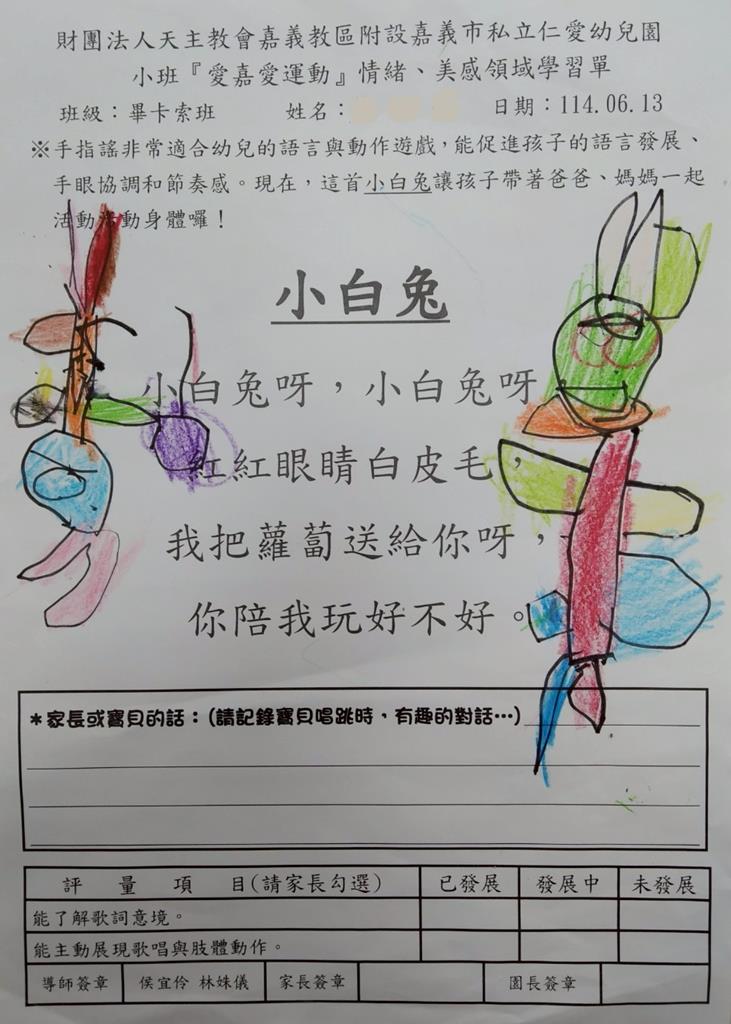 財團法人天主教會嘉義教區附設嘉義市私立仁愛幼兒園
小班『愛嘉愛運動』情緒、美感領域學習單
班級：畢卡索班 姓名： 日期：114.06.13
※手指謠非常適合幼兒的語言與動作遊戲，能促進孩子的語言發展、
手眼協調和節奏感。現在，這首小白兔讓孩子帶著爸爸、媽媽一起
活動活動身體囉！
小白兔
小白兔呀，小白兔呀
紅紅眼睛白皮毛，
我把蘿蔔送給你呀，
你陪我玩好不好。
＊家長或寶貝的話：(請記錄寶貝唱跳時，有趣的對話…)
評量項目(請家長勾選) 已發展 發展中 未發展
能了解歌詞意境。
能主動展現歌唱與肢體動作。
導師簽章 侯宜伶 林姝儀 家長簽章 園長簽章